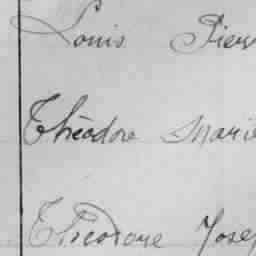 Louis Pierr
Théodore Marie
Théodore Josep